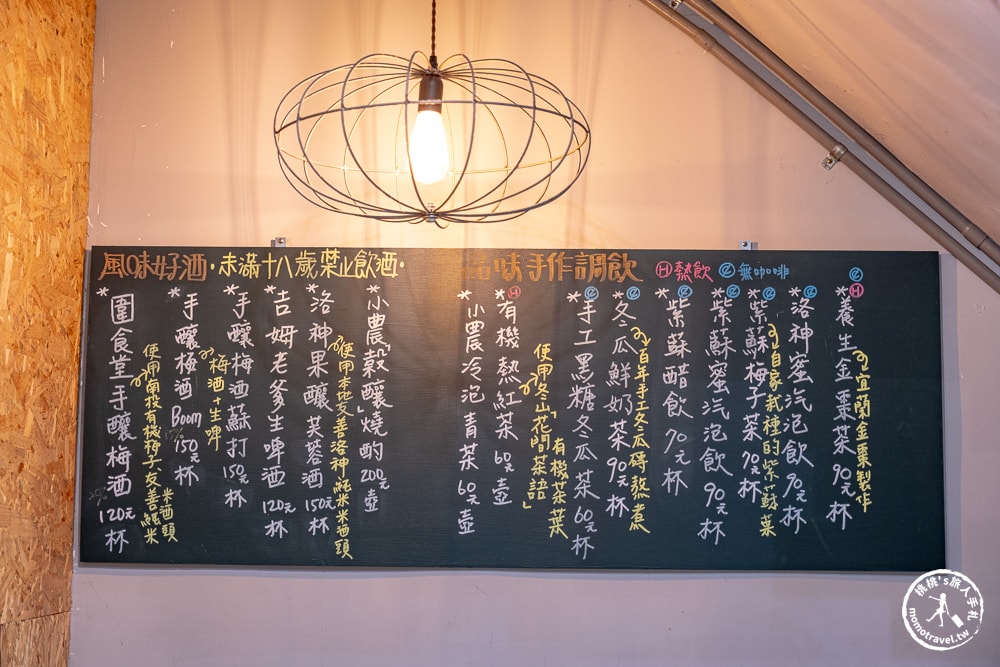 風味好酒·未滿十八歲禁止飲酒·
味手作調飲
Ⓗ熱飲 ⓒ無咖啡
ⓒ Ⓗ
*養生金棗茶 90元 杯
宜蘭金棗製作
ⓒ
*洛神蜜汽泡飲 90元 杯
ⓒ
*紫蘇梅子茶 90元 杯
自家栽種的紫蘇葉
ⓒ
*紫蘇蜜汽泡飲 90元 杯
ⓒ
*紫蘇醋飲 70元 杯
ⓒ
*冬瓜鮮奶茶 90元 杯
百年手工冬瓜磚熬煮
ⓒ
*手工黑糖冬瓜茶 60元 杯
Ⓗ
*有機熱紅茶 60元 壺
使用冬山「花間茶語」
有機茶葉
*小農冷泡青茶 60元 壺
*小農「穀釀」燒酌 200元 壺
*洛神果釀芙蓉酒 150元 杯
使用本地友善洛神純米米酒頭
*吉姆老爹生啤酒 120元 杯
*手釀梅酒蘇打 150元 杯
*手釀極酒Boom 150元 杯
梅酒+生啤
*圍食堂手釀梅酒 120元 杯
使用南投有機梅子友善純米
米酒頭
桃桃's旅人手札
momotravel.tw